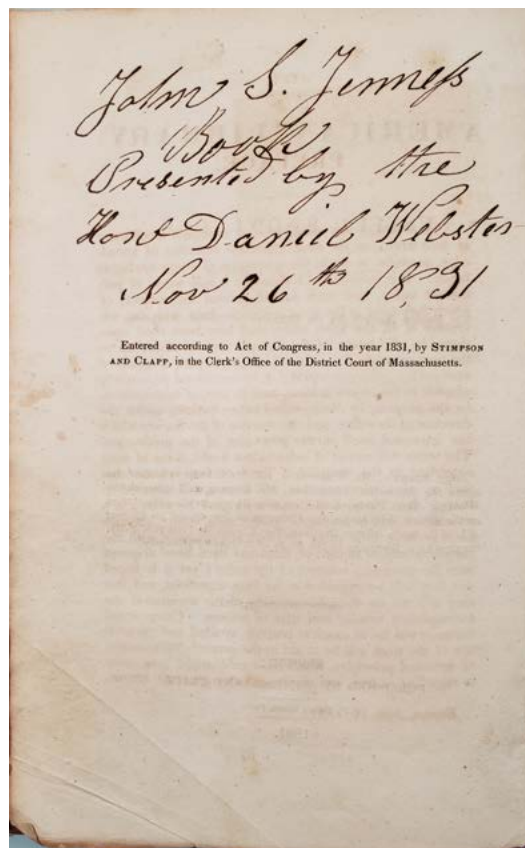 John S. Jenness
Book
Presented by the
Hond Daniel Webster
Nov 26th 1831
Entered according to Act of Congress, in the year 1831, by STIMPSON
AND CLAPP, in the Clerk's Office of the District Court of Massachusetts.